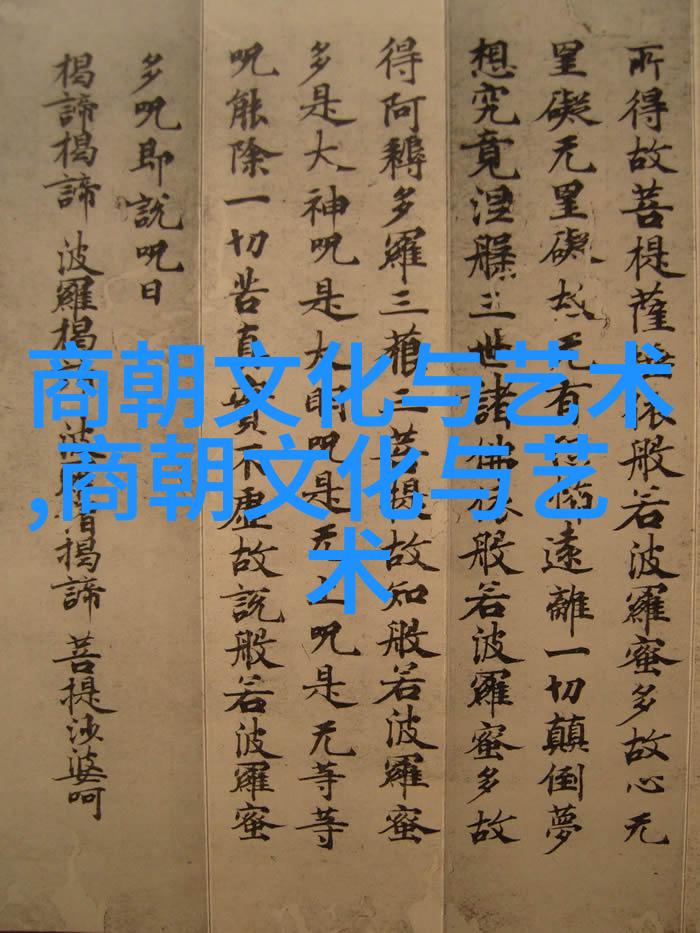 所得故菩提薩埵依般若波羅蜜多故心无
罣礙无罣礙故无有恐怖遠離一切顛倒夢
想究竟涅槃三世諸佛依般若波羅蜜多故
得阿耨多羅三藐三菩提故知般若波羅蜜
多是大神呪是大明呪是无上呪是无等等
呪能除一切苦真實不虛故說般若波羅蜜
多呪即說呪曰
揭諦揭諦 波羅揭諦 波羅僧揭諦 菩提沙婆呵
商朝文化与艺术
,商朝文化与艺
术